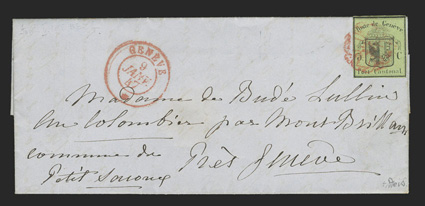 Poste de Genève
Port Cantonal
GENÈVE
9
JANV
47
Madame de Budé Lullin
Au Colombier par Mont Brillant
commune du Près Genève
Petit Saconex